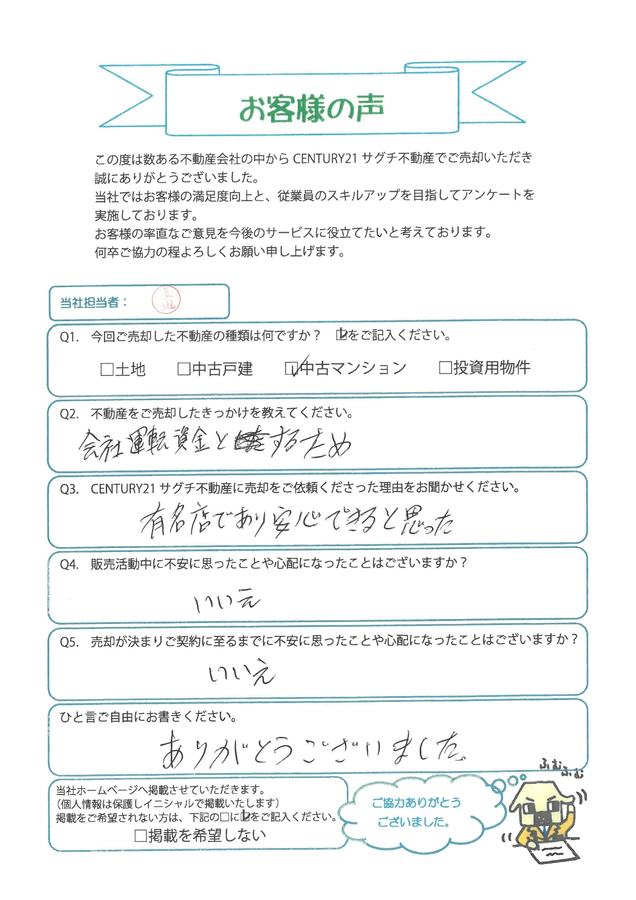 お客様の声
この度は数ある不動産会社の中から CENTURY21 サグチ不動産でご売却いただき
誠にありがとうございました。
当社ではお客様の満足度向上と、従業員のスキルアップを目指してアンケートを
実施しております。
お客様の率直なご意見を今後のサービスに役立てたいと考えております。
何卒ご協力の程よろしくお願い申し上げます。
当社担当者：
Q1. 今回ご売却した不動産の種類は何ですか？ ☑をご記入ください。
□土地 □中古戸建 ☑中古マンション □投資用物件
Q2. 不動産をご売却したきっかけを教えてください。
会社運転資金とするため
Q3. CENTURY21 サグチ不動産に売却をご依頼くださった理由をお聞かせください。
有名店であり安心できると思った
Q4. 販売活動中に不安に思ったことや心配になったことはございますか？
いいえ
Q5. 売却が決まりご契約に至るまでに不安に思ったことや心配になったことはございますか？
いいえ
ひと言ご自由にお書きください。
ありがとうございました。
当社ホームページへ掲載させていただきます。
（個人情報は保護しイニシャルで掲載いたします）
掲載をご希望されない方は、下記の□に☑をご記入ください。
□掲載を希望しない
ご協力ありがとう
ございました。
ふむふむ